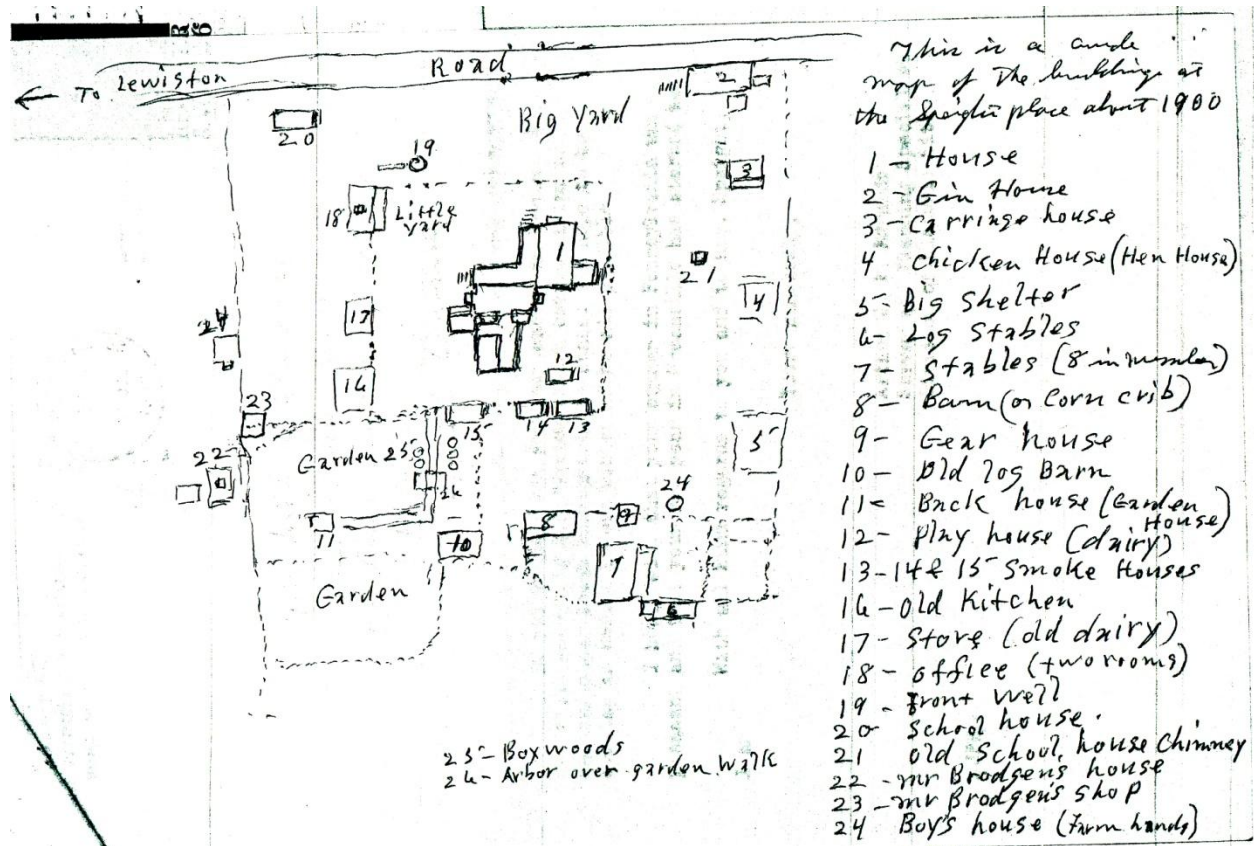 Road
← To Lewiston
Big Yard
2
20
19
3
18
Little
yard
1
21
4
17
24
12
16
23
15
14
13
5
Garden
25
22
26
24
8
9
11
10
7
6
Garden
25 - Boxwoods
26 - Arbor over garden walk
This is a crude
map of the buildings at
the Speight place about 1900
1 - House
2 - Gin House
3 - Carriage house
4 chicken House (Hen House)
5 - Big Shelter
6 - Log Stables
7 - Stables (8 in number)
8 - Barn (or Corn crib)
9 - Gear house
10 - Old log Barn
11 - Back house (Garden House)
12 - Play house (dairy)
13-14 & 15 Smoke Houses
16 - Old Kitchen
17 - Store (old dairy)
18 - office (two rooms)
19 - Front well
20 - School house.
21 old School house Chimney
22 - mr Brodgen's house
23 - mr Brodgen's shop
24 Boy's house (farm hands)